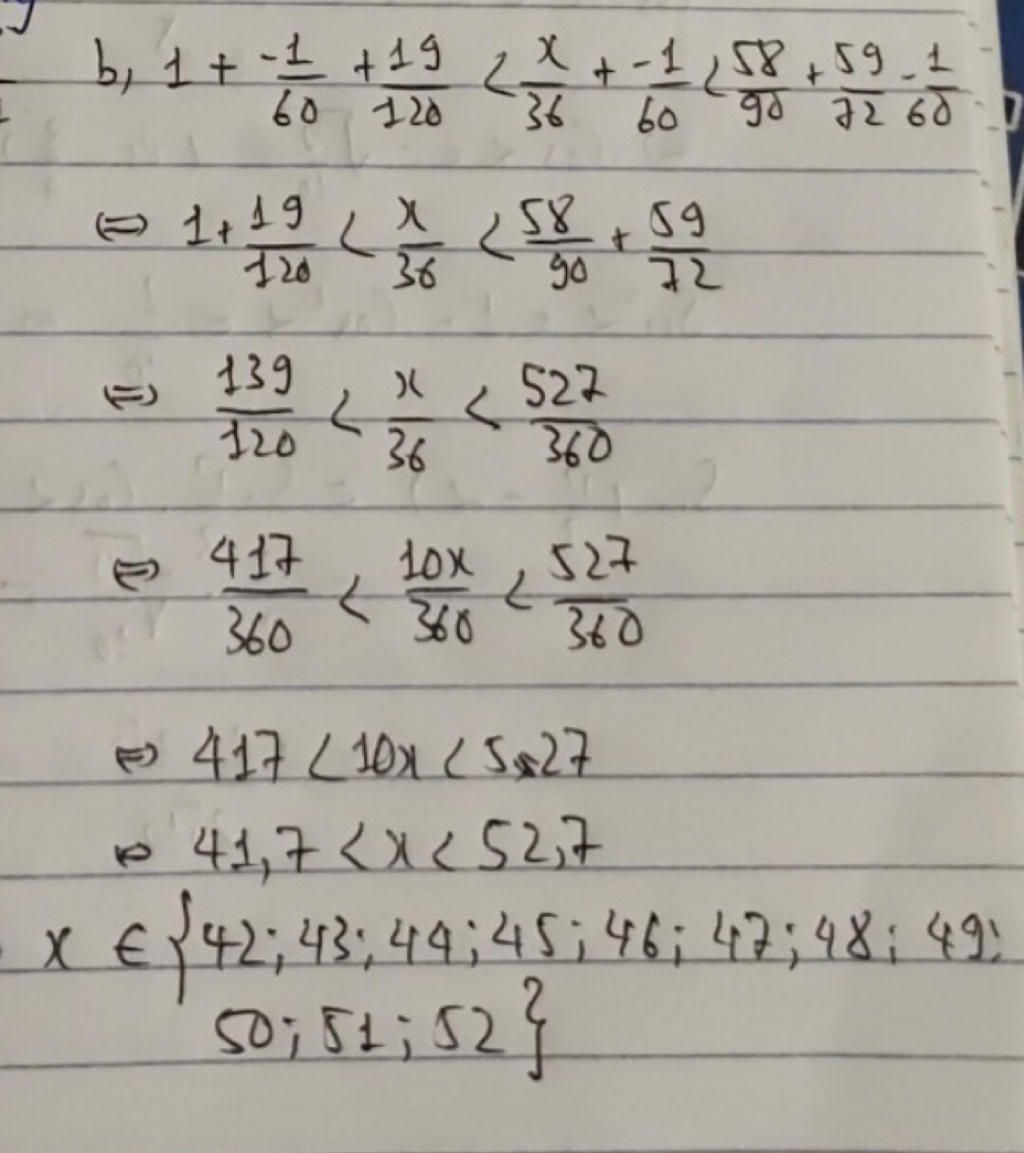 b, 1 + -1/60 + 19/120 < x/36 + -1/60 < 58/90 + 59/72 - 1/60
⇔ 1 + 19/120 < x/36 < 58/90 + 59/72
⇔ 139/120 < x/36 < 527/360
⇔ 417/360 < 10x/360 < 527/360
⇔ 417 < 10x < 527
⇔ 41,7 < x < 52,7
x ∈ {42; 43; 44; 45; 46; 47; 48; 49;
50; 51; 52}